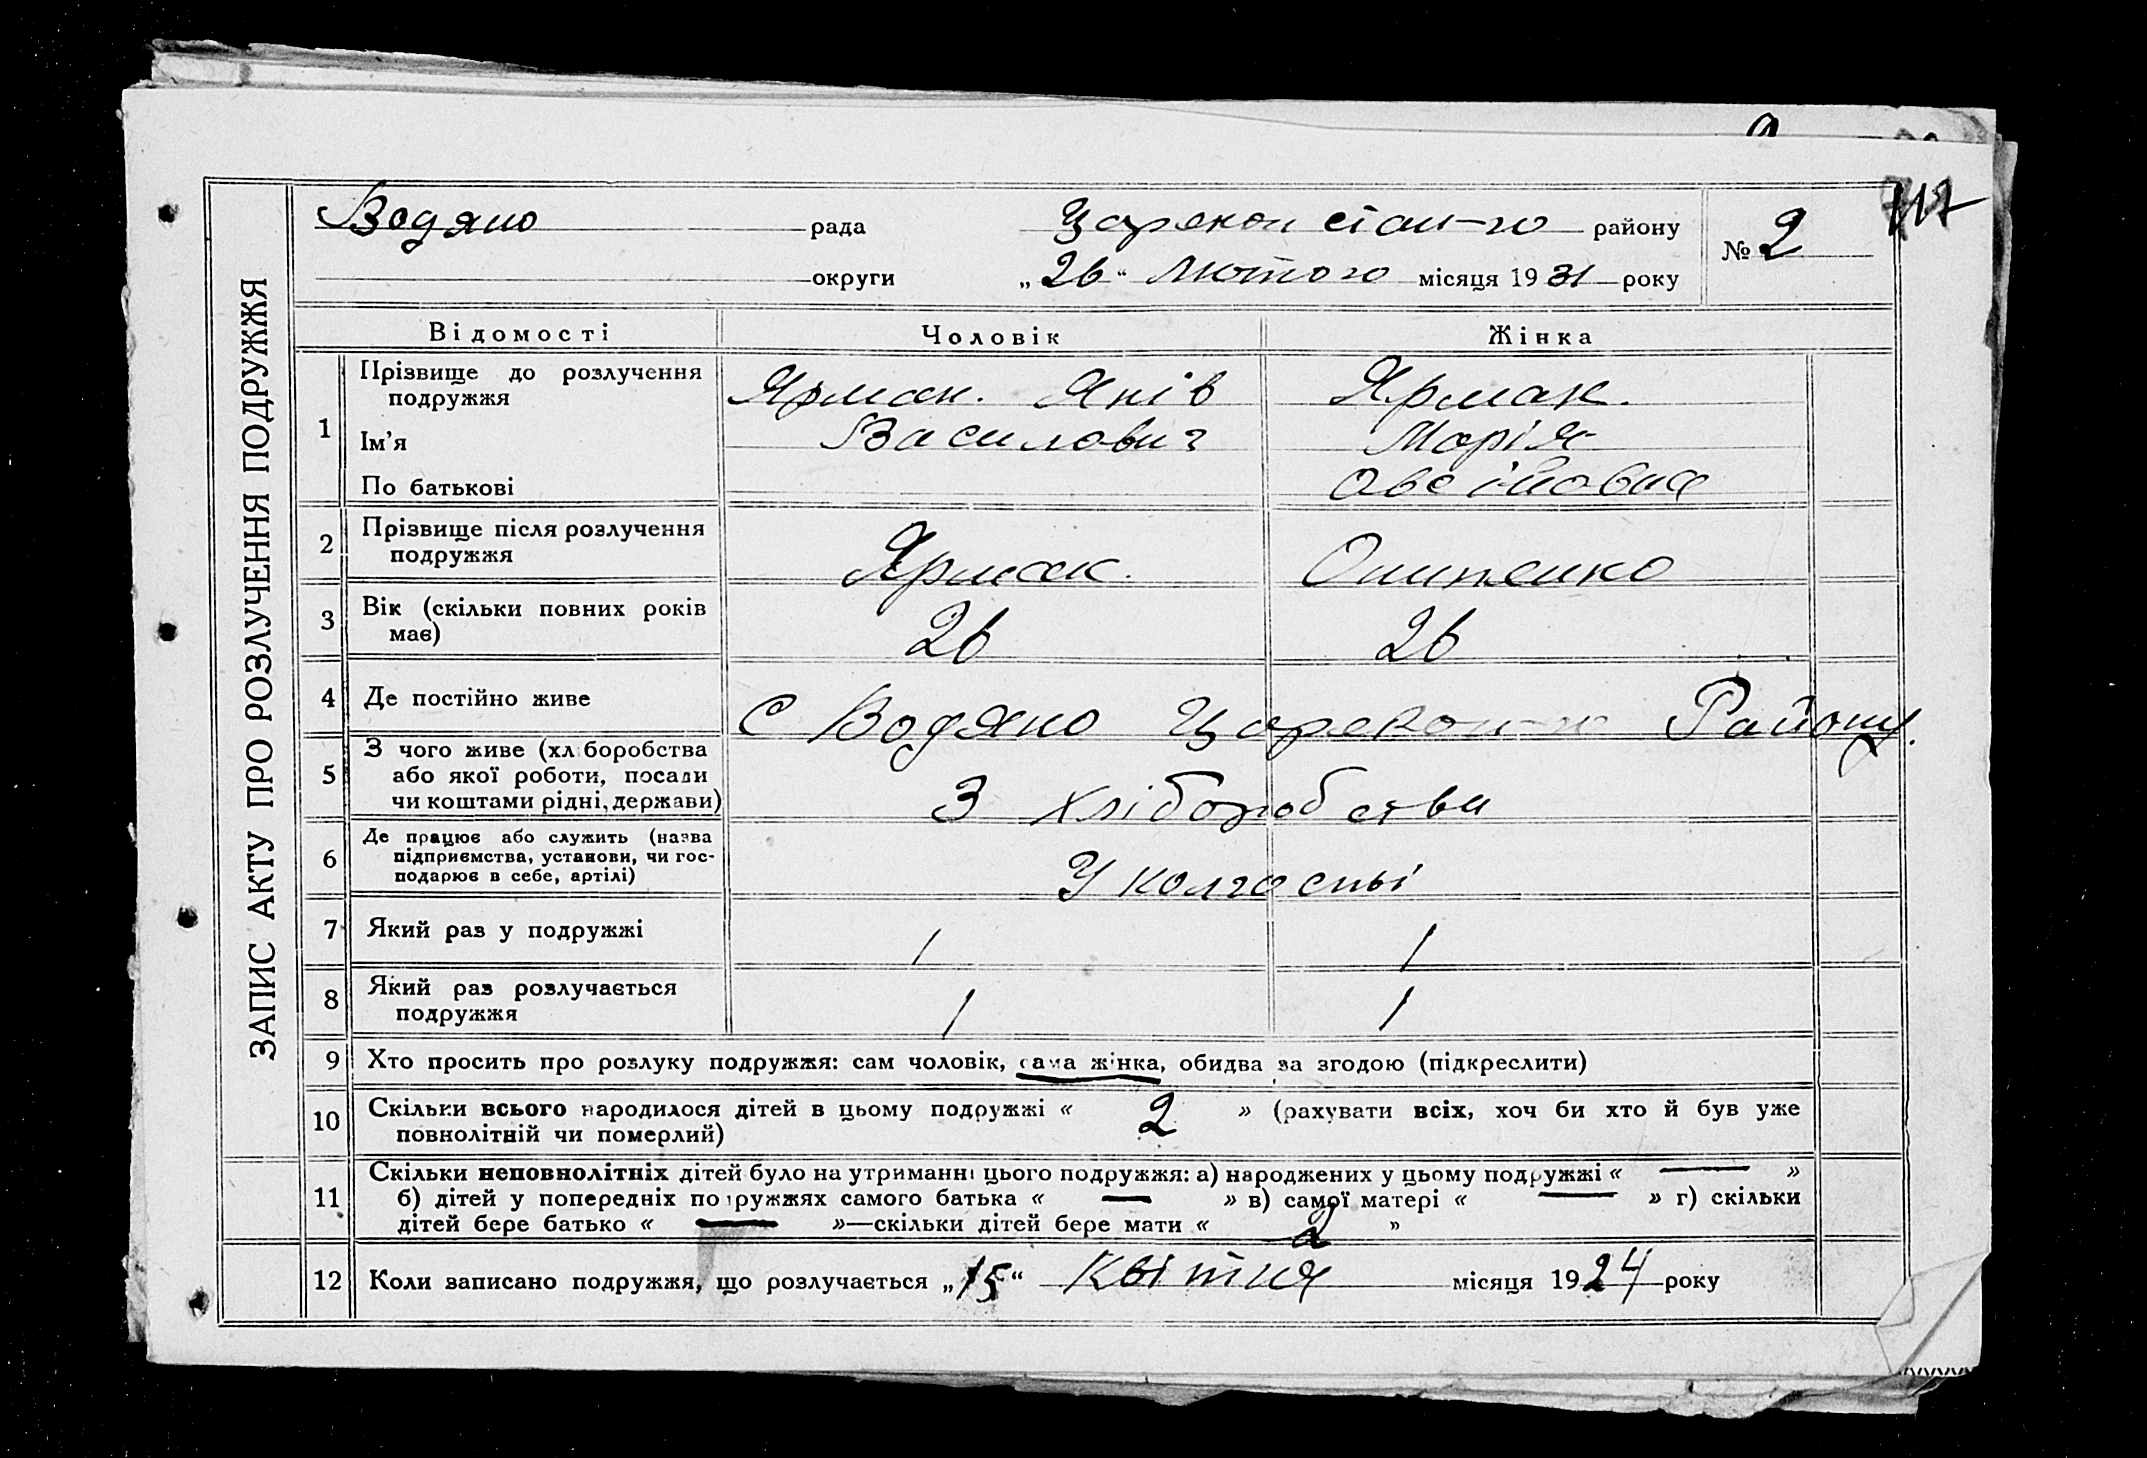 117
Водяно рада Царекон стан-го району № 2
округи „26“ Лютого місяця 1931 року
ЗАПИС АКТУ ПРО РОЗЛУЧЕННЯ ПОДРУЖЖЯ
Відомості Чоловік Жінка
1 Прізвище до розлучення подружжя Ярмак. Яків Ярмак.
Ім’я Василович Марія
По батькові Овсіновна
2 Прізвище після розлучення
подружжя Ярмак. Онипенко
3 Вік (скільки повних років
має) 26 26
4 Де постійно живе С Водяно Царекон-го Району.
5 З чого живе (хліборобства
або якої роботи, посади
чи коштами рідні, держави) З хліборобства
6 Де працює або служить (назва
підприємства, установи, чи гос-
подарює в себе, артілі) У колгоспі
7 Який раз у подружжі 1 1
8 Який раз розлучається
подружжя 1 1
9 Хто просить про розлуку подружжя: сам чоловік, сама жінка, обидва за згодою (підкреслити)
10 Скільки всього народилося дітей в цьому подружжі « 2 » (рахувати всіх, хоч би хто й був уже
повнолітній чи померлий)
11 Скільки неповнолітніх дітей було на утриманні цього подружжя: а) народжених у цьому подружжі « — »
б) дітей у попередніх подружжях самого батька « — » в) самої матері « — » г) скільки
дітей бере батько « — »—скільки дітей бере мати « 2 »
12 Коли записано подружжя, що розлучається „15“ Квітня місяця 1924 року